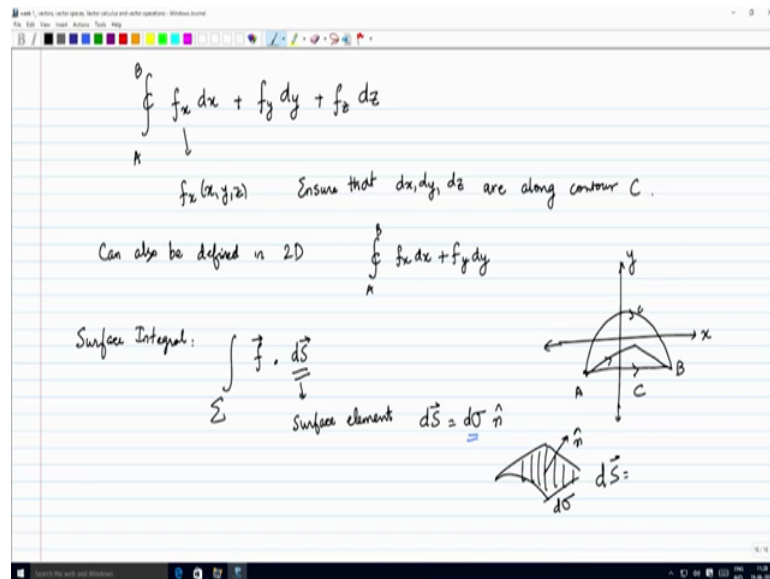 week 1_ vectors, vector spaces, Vector calculus and vector operations - Windows Journal
File Edit View Insert Actions Tools Help
B
∮ f_x dx + f_y dy + f_z dz
A
f_x (x,y,z) Ensure that dx, dy, dz are along contour C.
B
Can also be defined in 2D ∮ f_x dx + f_y dy
A
y
x
A C B
Surface Integral: ∫ f⃗ . dS⃗
Σ
Surface element dS⃗ = dσ n̂
n̂
dS⃗ =
dσ
Search the web and Windows
ENG